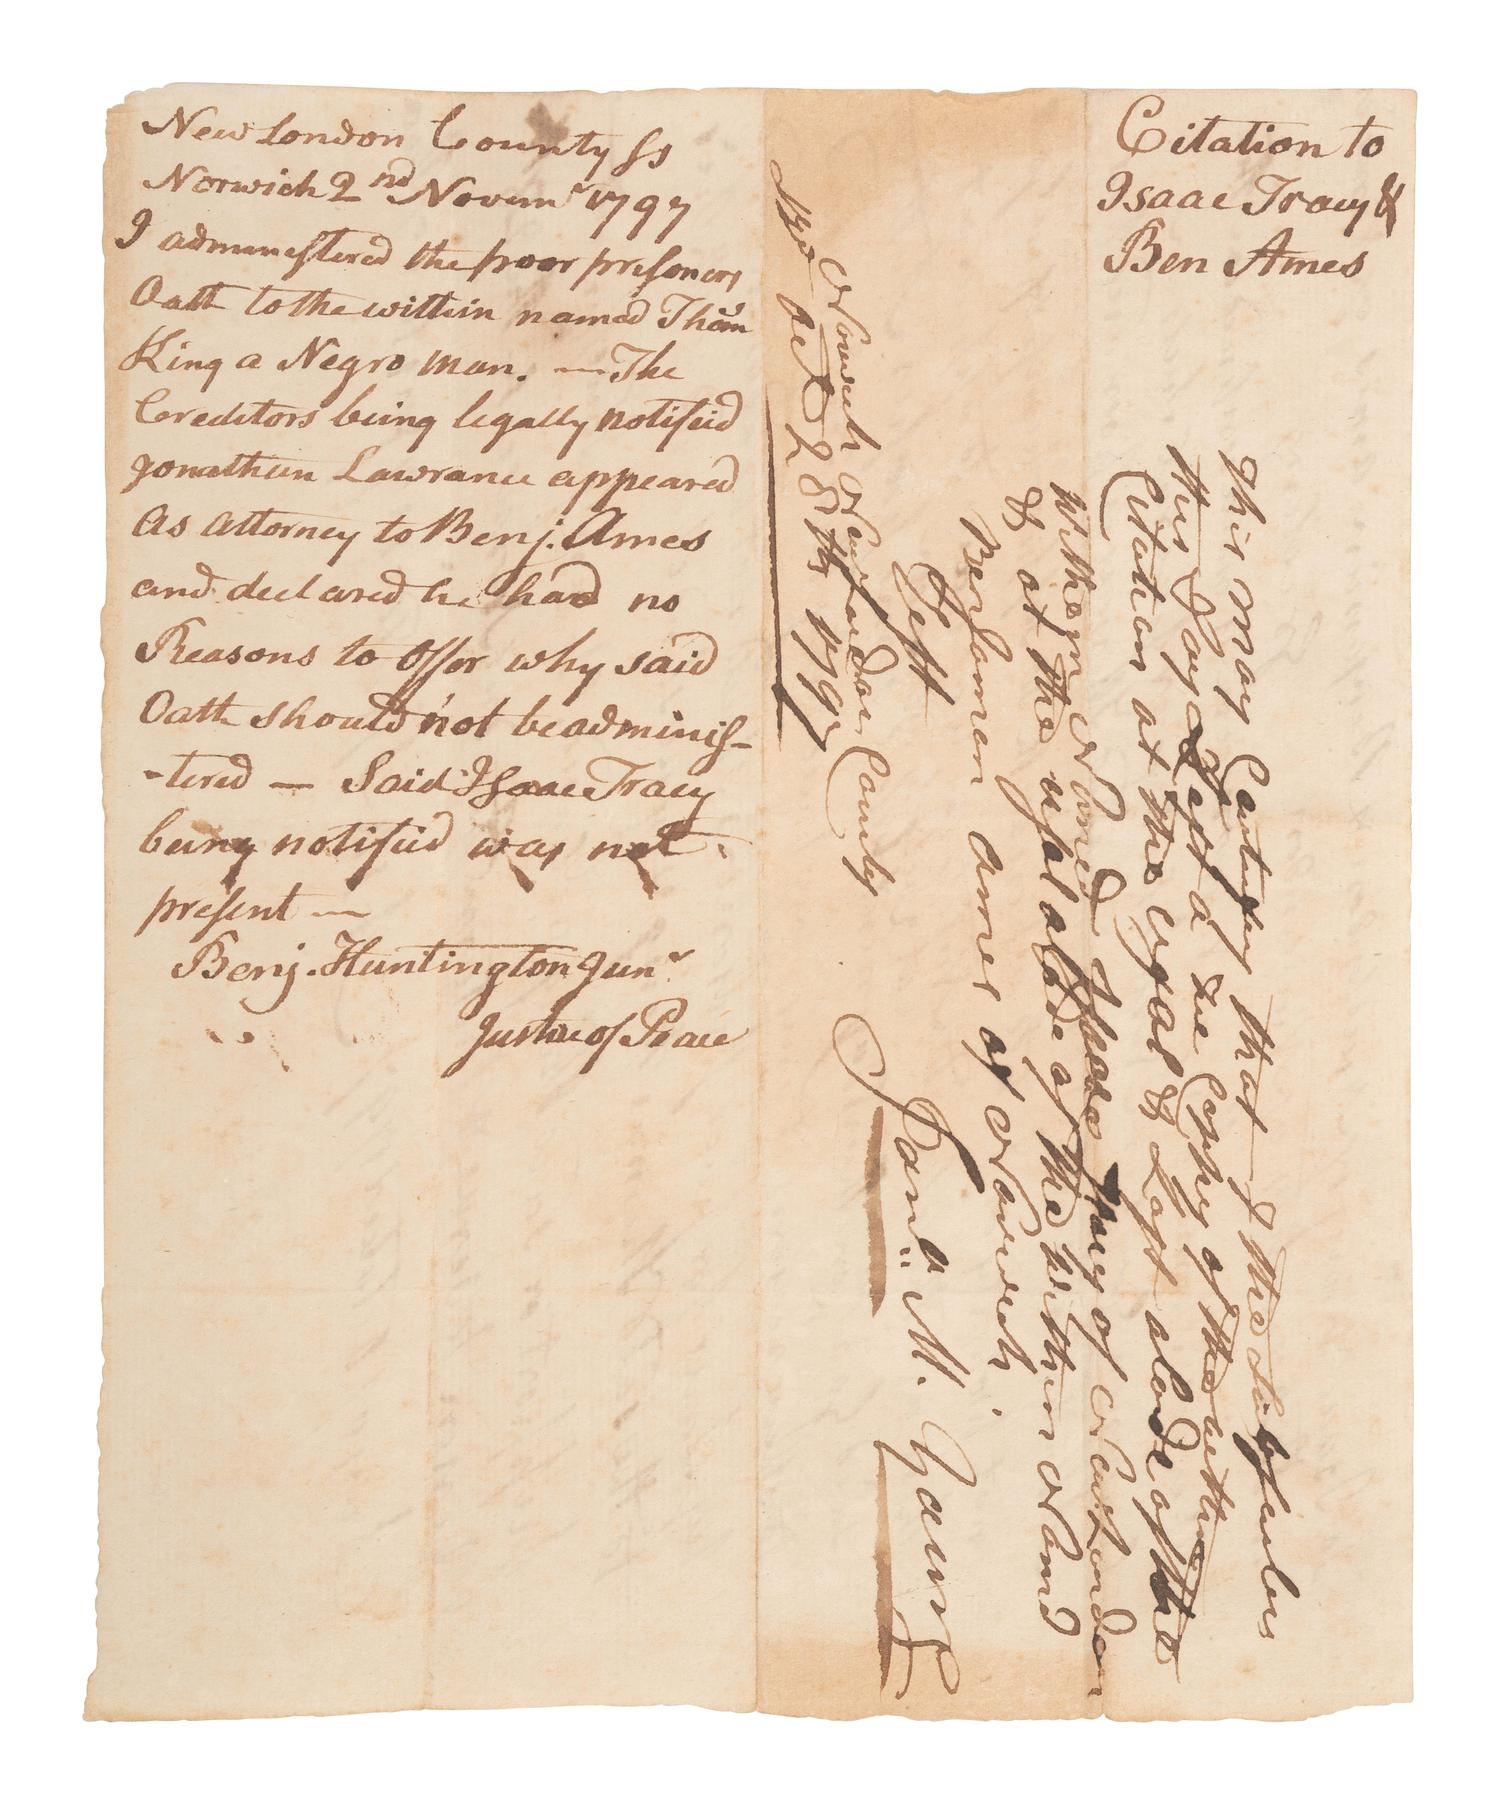 New London County ss
Norwich 2nd Novemr 1797
I administered the poor prisoners
Oath to the within named Thoms
King a Negro man. — The
Creditors being legally notified
Jonathan Lawrance appeared
As attorney to Benj. Ames
and declared he had no
Reasons to Offer why said
Oath should not be adminis-
-tered — Said Isaac Tracy
being notified was not
present —
Benj. Huntington Junr
Justice of Peace
Citation to
Isaac Tracy &
Ben Ames
This may Certify that I the
this Day Left a Copy of the within
Citation at the & Last abode of the
Within Named Isaac Tracy of New London
& at the usal abode of the Within Named
Benjamen ames of Norwich.
Test
Norwich New London County
Oct 28th 1797
M. Young